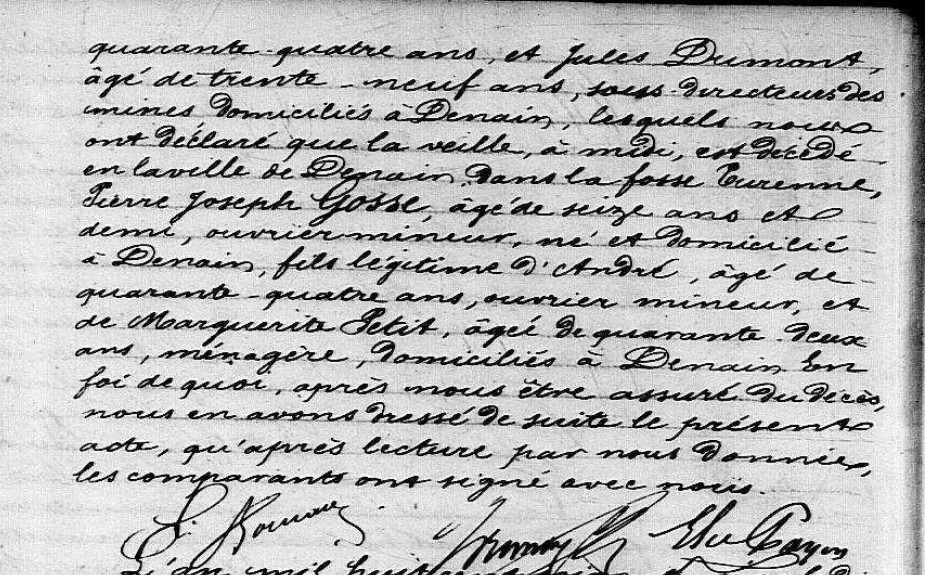 quarante-quatre ans, et Jules Dumont,
âgé de trente-neuf ans, sous-directeurs des
mines domiciliés à Denain, lesquels nous
ont déclaré que la veille, à midi, est décédé
en la ville de Denain, dans la fosse Turenne,
Pierre Joseph Gosse, âgé de seize ans et
demi, ouvrier mineur, né et domicilié
à Denain, fils légitime d'André, âgé de
quarante-quatre ans, ouvrier mineur, et
de Marguerite Petit, âgée de quarante-deux
ans, ménagère, domiciliés à Denain En
foi de quoi, après nous être assuré du décès,
nous en avons dressé de suite le présent
acte, qu'après lecture par nous donnée,
les comparants ont signé avec nous.
L'an mil huit cent